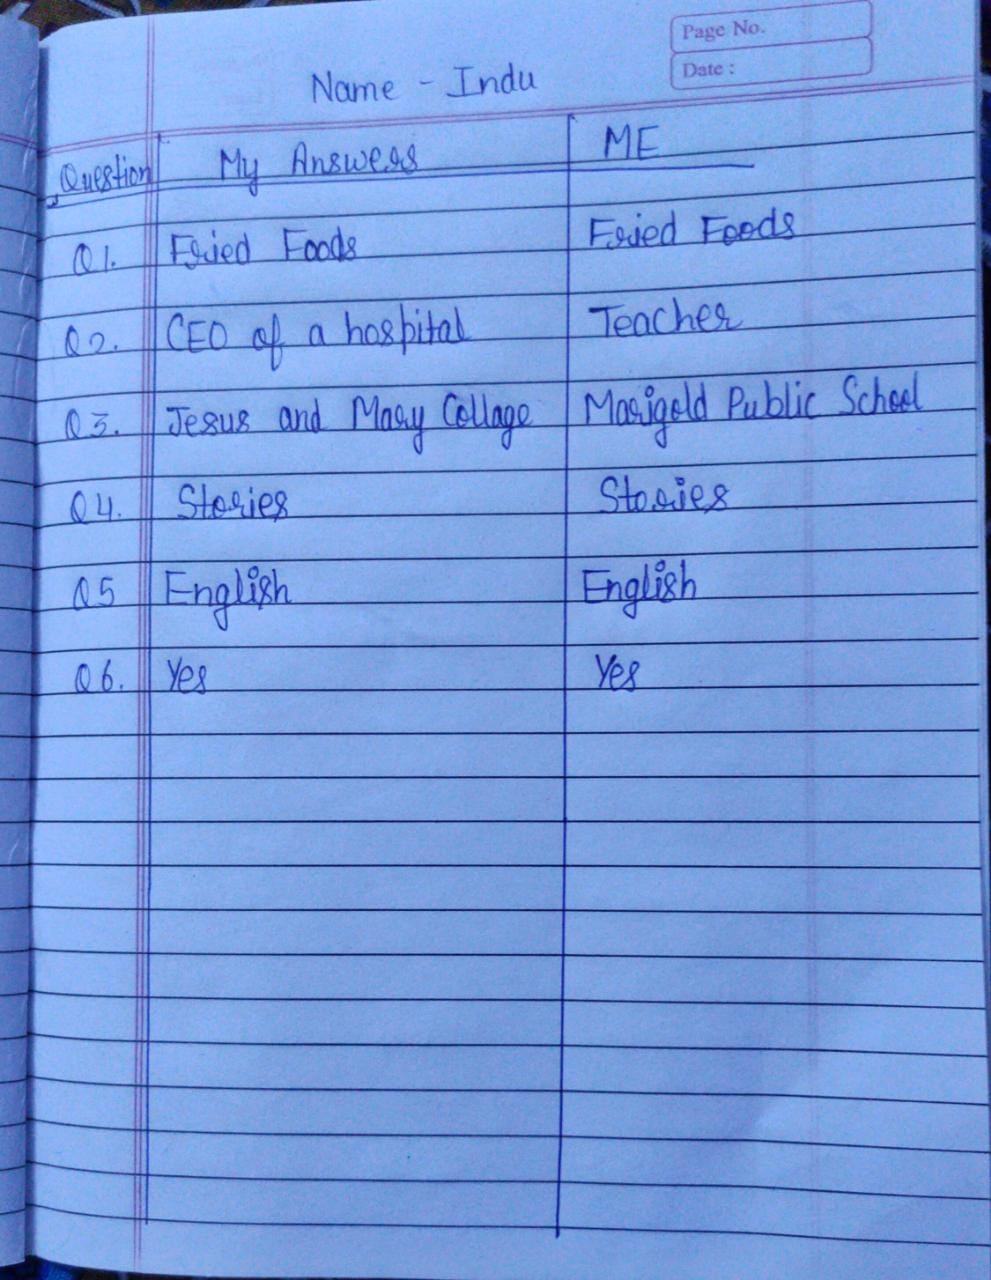 Page No.
Date :
Name - Indu
Question My Answers ME
Q1. Fried Foods Fried Foods
Q2. CEO of a hospital Teacher
Q3. Jesus and Mary Collage Marigold Public School
Q4. Stories Stories
Q5 English English
Q6. Yes Yes